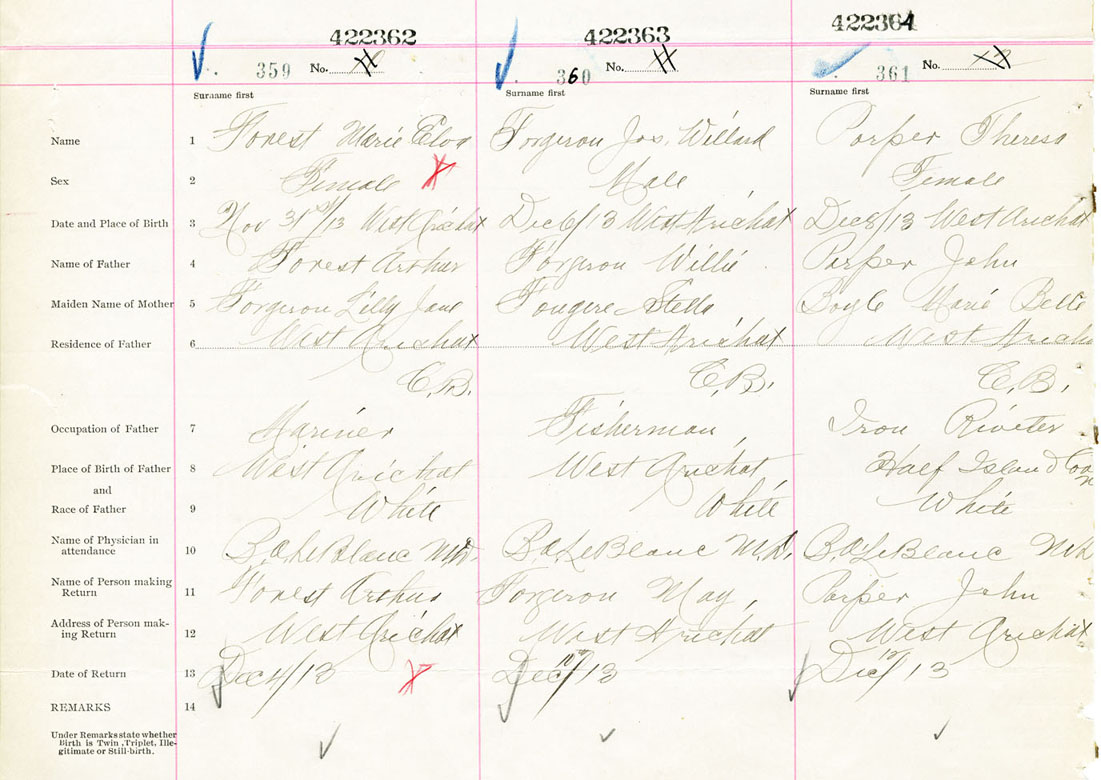 422362 422363 422364
359 No. 360 No. 361 No.
Surname first Surname first Surname first
Name 1 Forest Marie Forgeron Jos. Willard Porper Theresa
Sex 2 Female X Male Female
Date and Place of Birth 3 Nov 31st/13 West Arichat Dec 6/13 West Arichat Dec 8/13 West Arichat
Name of Father 4 Forest Arthur Forgeron Willie Porper John
Maiden Name of Mother 5 Forgeron Lilly Jane Fougere Stella Boyle Marie Belle
Residence of Father 6 West Arichat West Arichat West Aricha
C.B. C.B. C.B.
Occupation of Father 7 Mariner Fisherman, Iron Riveter
Place of Birth of Father 8 West Arichat West Arichat Half Island
and
Race of Father 9 White White White
Name of Physician in
attendance 10 B.A. LeBlanc M.D. B.A. LeBlanc M.D. B.A. LeBlanc M.D.
Name of Person making
Return 11 Forest Arthur Forgeron May, Porper John
Address of Person mak-
ing Return 12 West Arichat West Arichat West Arichat
Date of Return 13 Dec 4/13 X Dec /13 Dec /13
REMARKS 14
Under Remarks state whether
Birth is Twin, Triplet, Ille-
gitimate or Still-birth.